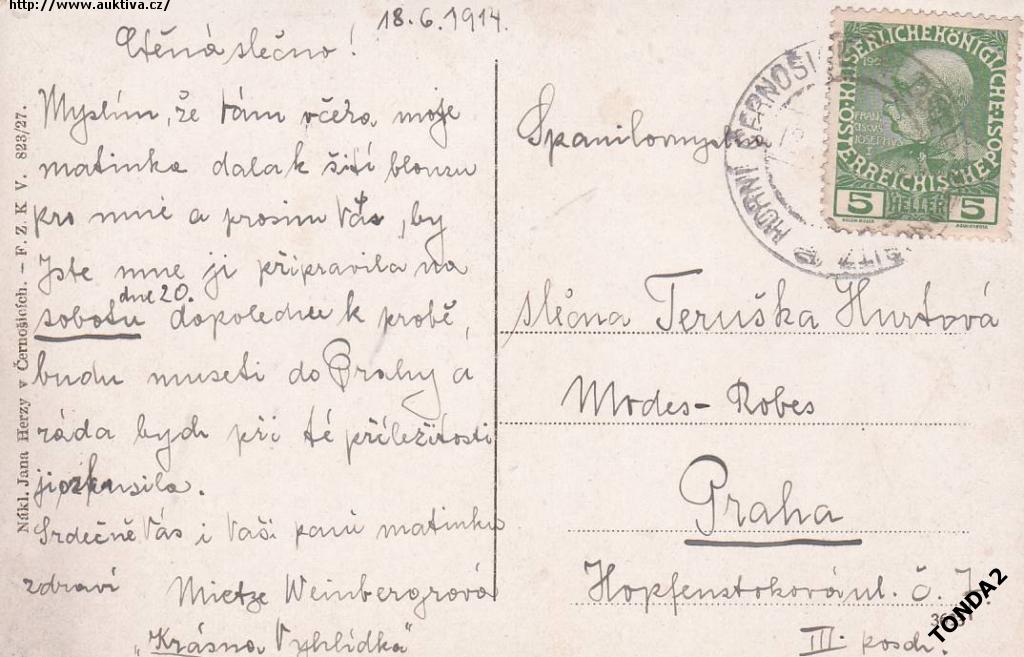 http://www.auktiva.cz/
18.6.1914.
Ctěná slečno!
Myslím, že Vám včera moje
matinka dala k šití blouzu
pro mne a prosím Vás, by
Jste mne ji připravila na
dne 20.
sobotu dopoledne k probě,
budu museti do Prahy a
ráda bych při té příležitosti
ji zkusila.
Srdečně Vás i Vaši paní matinku
zdraví
Mietze Weinbergrová
"Krásna Vyhlídka"
Nákl. Jana Herzy v Černošicích. - F. Z. K. V. 823/27.
HORNÍ ČERNOŠI
ÖSTERREICHISCHE POST
KAISERLICHE KÖNIGLICHE
5 HELLER 5
slečna Teruška Hurtová
Modes - Robes
Praha
Hopfenstoková ul. č.
III. posch.
TONDA2